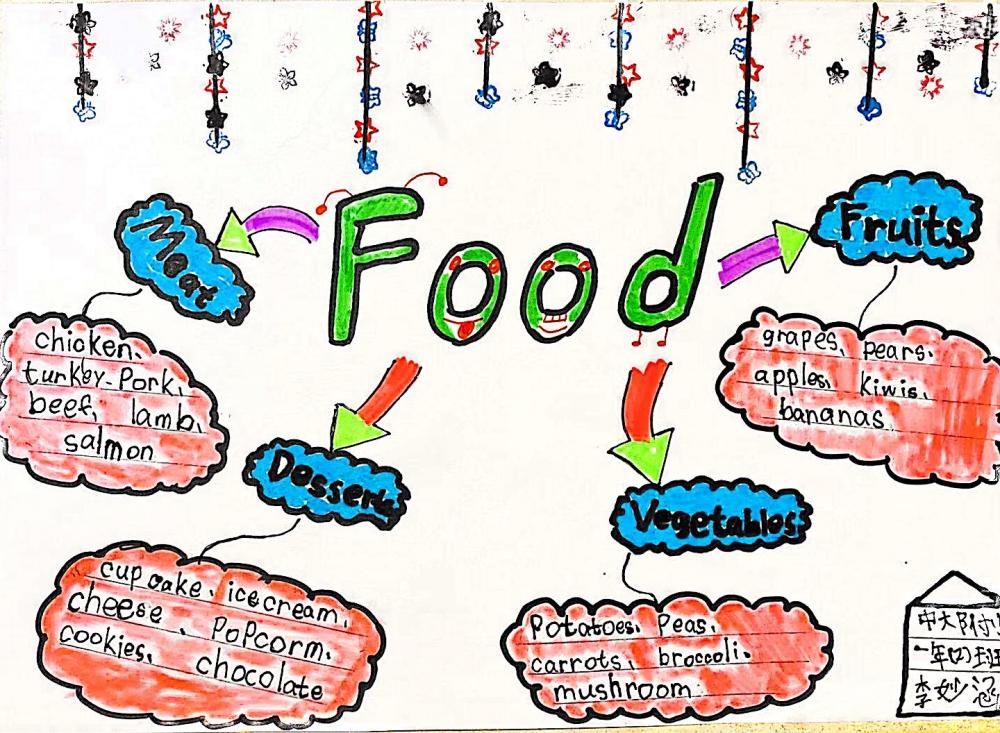 Food
Meat
chicken、
turkey、Pork、
beef、 lamb、
salmon
Fruits
grapes、pears、
apples、 kiwis、
bananas
Desserts
cup cake、icecream、
cheese、 PoPcorm、
cookies、 chocolate
Vegetables
Potatoes、peas、
carrots、broccoli、
mushroom
中大附小
一年四班
李妙涵